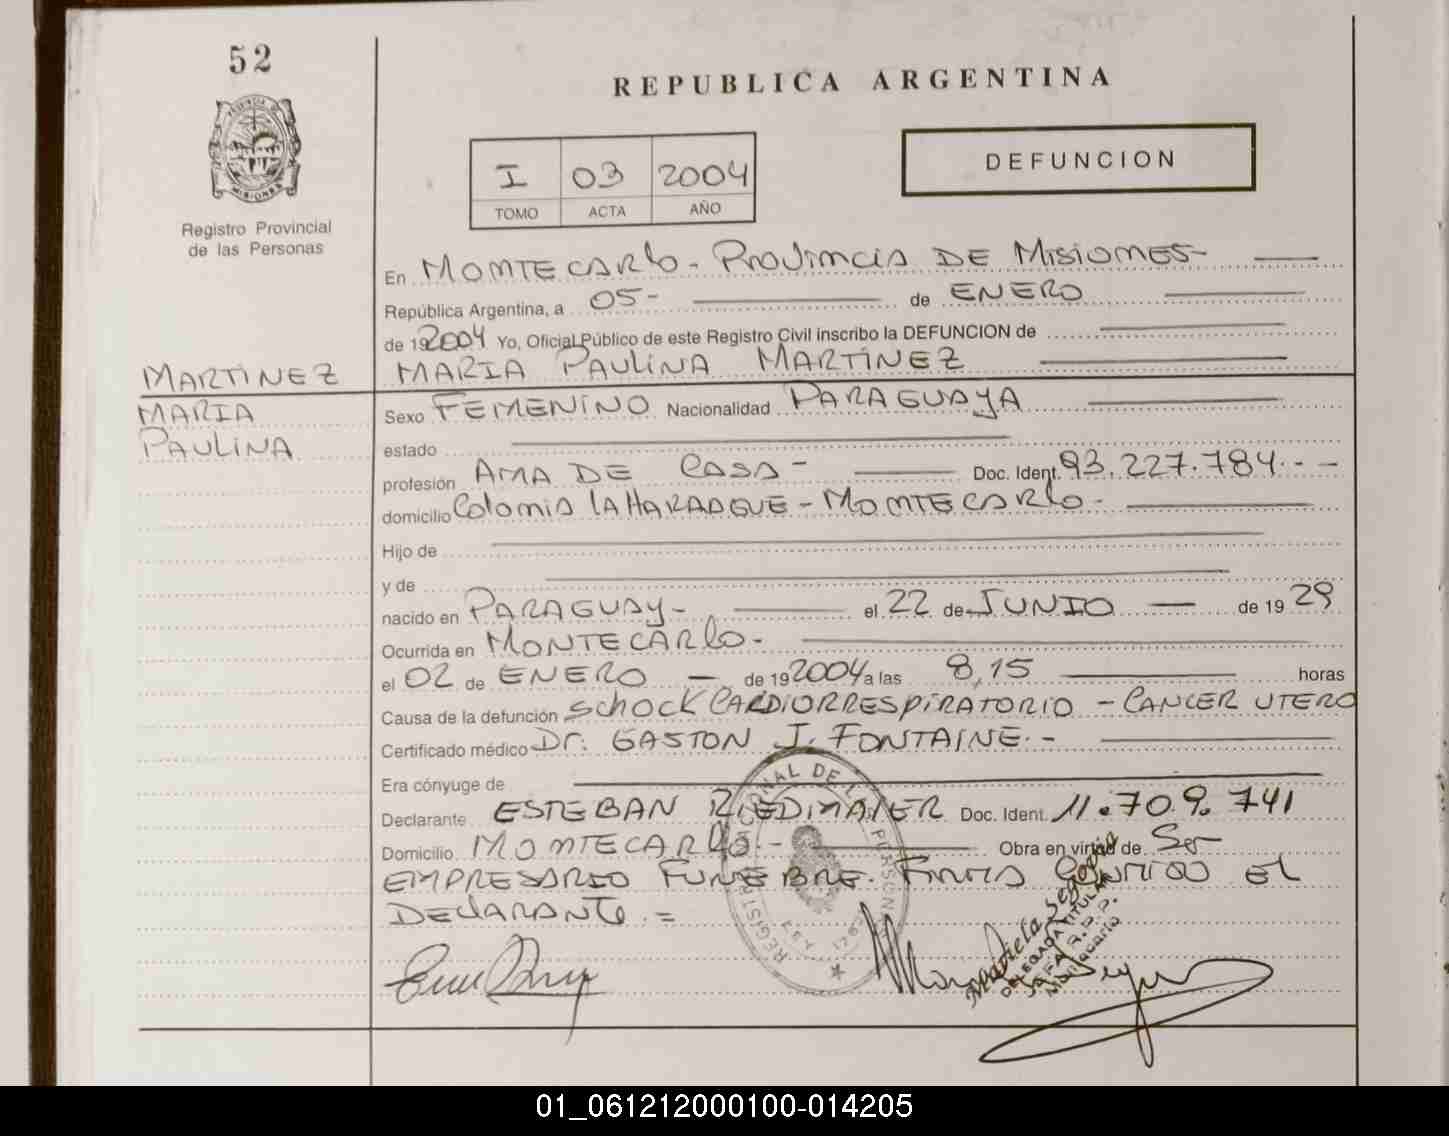 52
REPUBLICA ARGENTINA
PROVINCIA DE
MISIONES
Registro Provincial
de las Personas
I 03 2004
TOMO ACTA AÑO
DEFUNCION
En MONTECARlo - PROVINCIA DE MISIONES-
República Argentina, a 05- de ENERO
de 192004 Yo, Oficial Público de este Registro Civil inscribo la DEFUNCION de
MARTINEZ MARIA PAULINA MARTINEZ
MARIA
PAULINA
Sexo FEMENINO Nacionalidad PARAGUAYA
estado
profesión AMA DE CASA - Doc. Ident. 93.227.784.--
domicilio Colonia LAHARRAGUE - MONTECARlo -
Hijo de
y de
nacido en PARAGUAY - el 22 de JUNIO de 19 29
Ocurrida en MONTECARlo -
el 02 de ENERO de 192004 a las 8,15 horas
Causa de la defunción SCHOCK CARDIORRESPIRATORIO - CANCER UTERO
Certificado médico Dr. GASTON J. FONTAINE. -
Era cónyuge de
Declarante ESTEBAN RIEDMAIER Doc. Ident. 11.709.741
Domicilio MONTECARlo. - Obra en virtud de Ser
EMPRESARIO FUNEBRE. FIRMA CONMIGO EL
DEClARANTE. =
REGISTRO NACIONAL DE LAS PERSONAS
Mariela Segovia
DELEGADA TITULAR
01_061212000100-014205